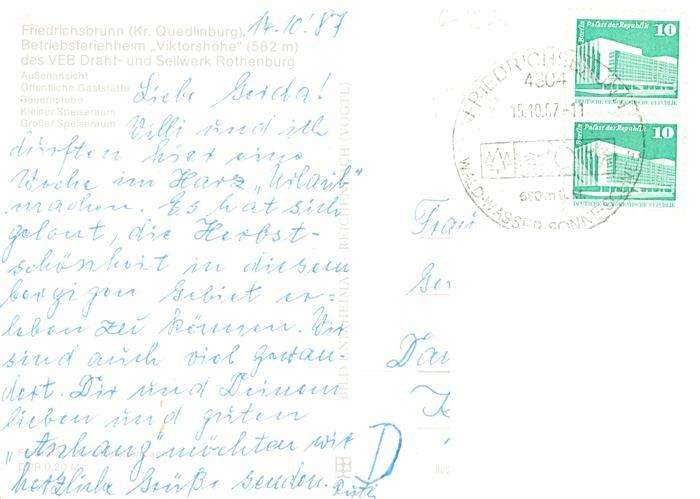 14.10.87
Friedrichsbrunn (Kr. Quedlinburg),
Betriebsferienheim „Viktorshöhe" (582 m)
des VEB Draht- und Seilwerk Rothenburg
Außenansicht
Öffentliche Gaststätte
Bauernstube
Kleiner Speiseraum
Großer Speiseraum
Liebe Gerda!
Willi und ich
dürften hier eine
Woche im Harz „Urlaub"
machen. Es hat sich
gelont, die Herbst-
schönheit in diesem
bergigen Gebiet er-
leben zu können. Wir
sind auch viel gewan-
dert. Dir und Deinem
lieben und guten
„Anhang" möchten wir
herzliche Grüße senden.
Ruth
BILD UND HEIMAT REICHENBACH (VOGTL)
Berlin Palast der Republik 10
DEUTSCHE DEMOKRATISCHE REPUBLIK
Berlin Palast der Republik 10
DEUTSCHE DEMOKRATISCHE REPUBLIK
FRIEDRICHSBRUNN
4304
15.10.87-11
WALD-WASSER-SONNE
Frau
Ger
Dan
K
D